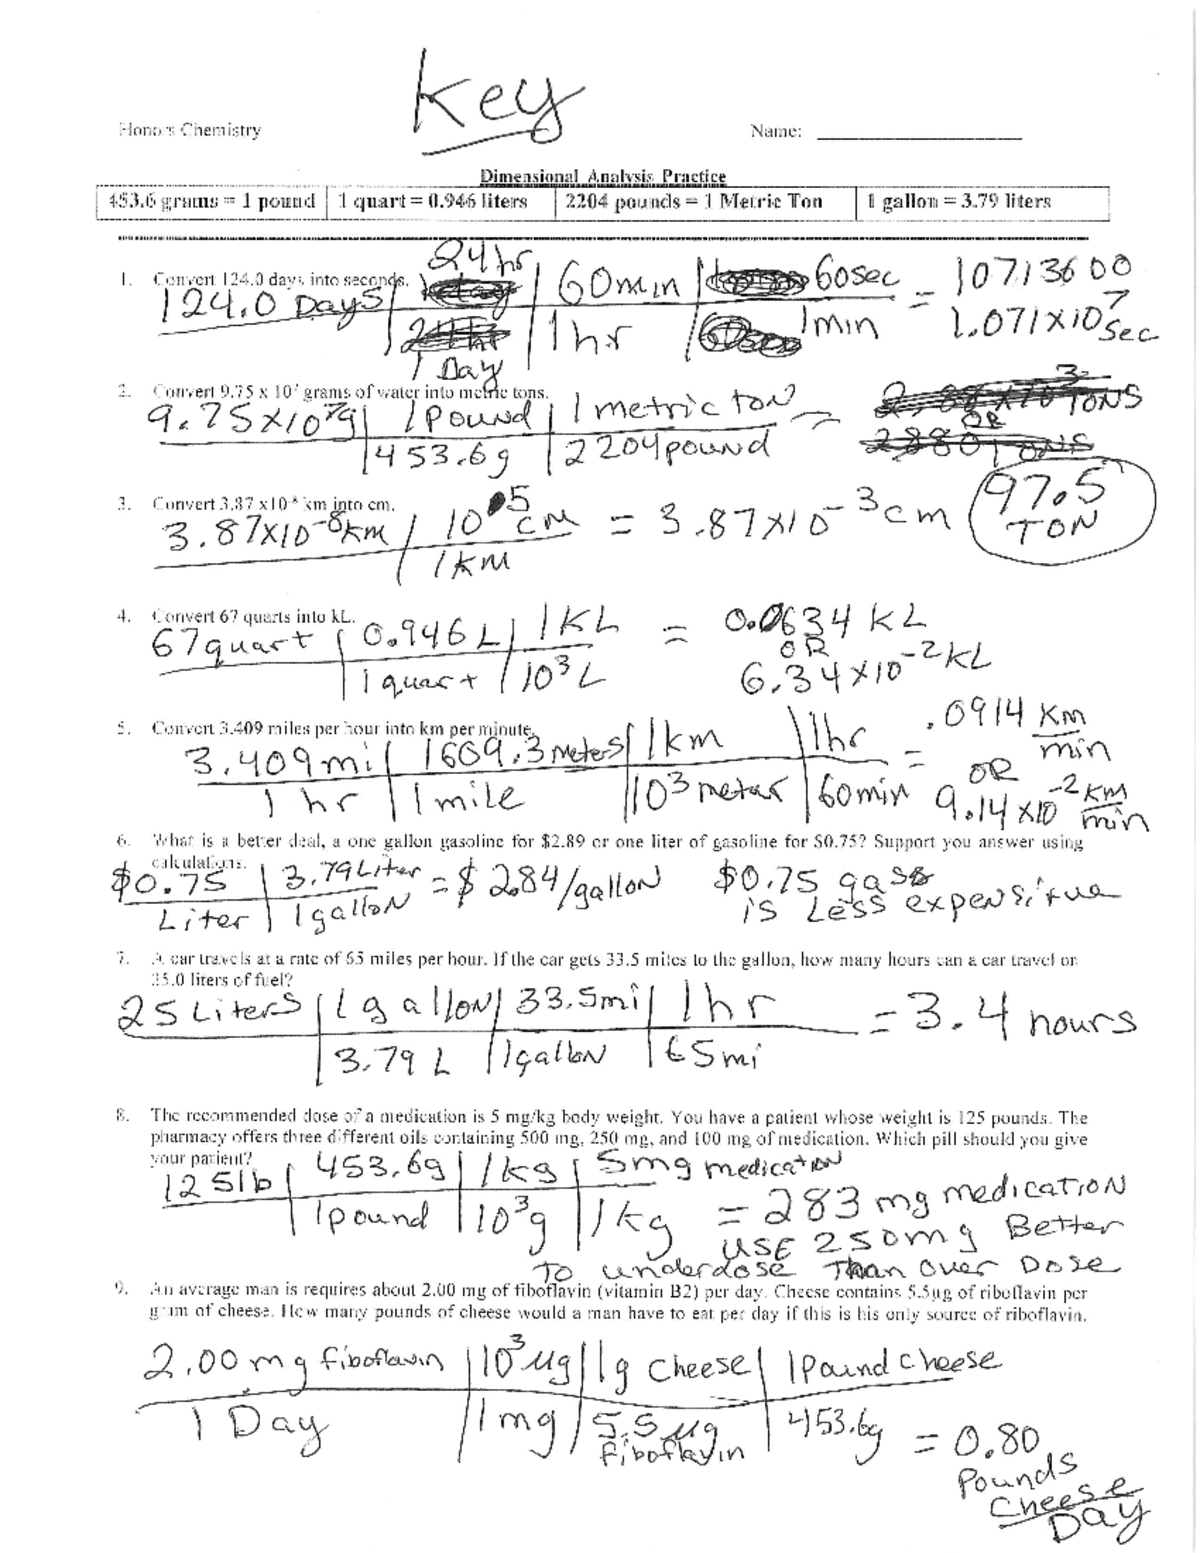 Key
Honors Chemistry Name:
Dimensional Analysis Practice
453.6 grams = 1 pound 1 quart = 0.946 liters 2204 pounds = 1 Metric Ton 1 gallon = 3.79 liters
1. Convert 124.0 days into seconds.
124.0 Days | 24 hr | 60 min | 60 sec = 10713600
1 Day | 1 hr | 1 min 1.071 x 10^7 sec
2. Convert 9.75 x 10^7 grams of water into metric tons.
9.75 x 10^7 g | 1 Pound | 1 metric ton =
453.6 g | 2204 pound
97.5 TON
3. Convert 3.87 x10^-8 km into cm.
3.87 x 10^-8 km | 10^5 cm = 3.87 x 10^-3 cm
1 km
4. Convert 67 quarts into kL.
67 quart | 0.946 L | 1 KL = 0.0634 KL
1 quart | 10^3 L OR 6.34 x 10^-2 KL
5. Convert 3.409 miles per hour into km per minute.
3.409 mi | 1609.3 meters | 1 km | 1 hr = .0914 Km/min
1 hr | 1 mile | 10^3 meter | 60 min OR 9.14 x 10^-2 km/min
6. What is a better deal, a one gallon gasoline for $2.89 or one liter of gasoline for $0.75? Support you answer using
calculations.
$0.75 | 3.79 Liter = $2.84/gallon $0.75 gas
Liter | 1 gallon is Less expensitue
7. A car travels at a rate of 65 miles per hour. If the car gets 33.5 miles to the gallon, how many hours can a car travel on
25.0 liters of fuel?
25 Liters | 1 gallon | 33.5 mi | 1 hr = 3.4 hours
3.79 L | 1 gallon | 65 mi
8. The recommended dose of a medication is 5 mg/kg body weight. You have a patient whose weight is 125 pounds. The
pharmacy offers three different oils containing 500 mg, 250 mg, and 100 mg of medication. Which pill should you give
your patient?
125 lb | 453.6g | 1 kg | 5mg medication
1 pound | 10^3 g | 1 kg = 283 mg medication
USE 250 mg Better
To underdose Than over Dose
9. An average man is requires about 2.00 mg of fiboflavin (vitamin B2) per day. Cheese contains 5.5µg of riboflavin per
gram of cheese. How many pounds of cheese would a man have to eat per day if this is his only source of riboflavin.
2.00 mg fiboflavin | 10^3 µg | 1g Cheese | 1 Pound cheese
1 Day | 1 mg | 5.5 µg fiboflavin | 453.6g = 0.80
Pounds
Cheese
Day